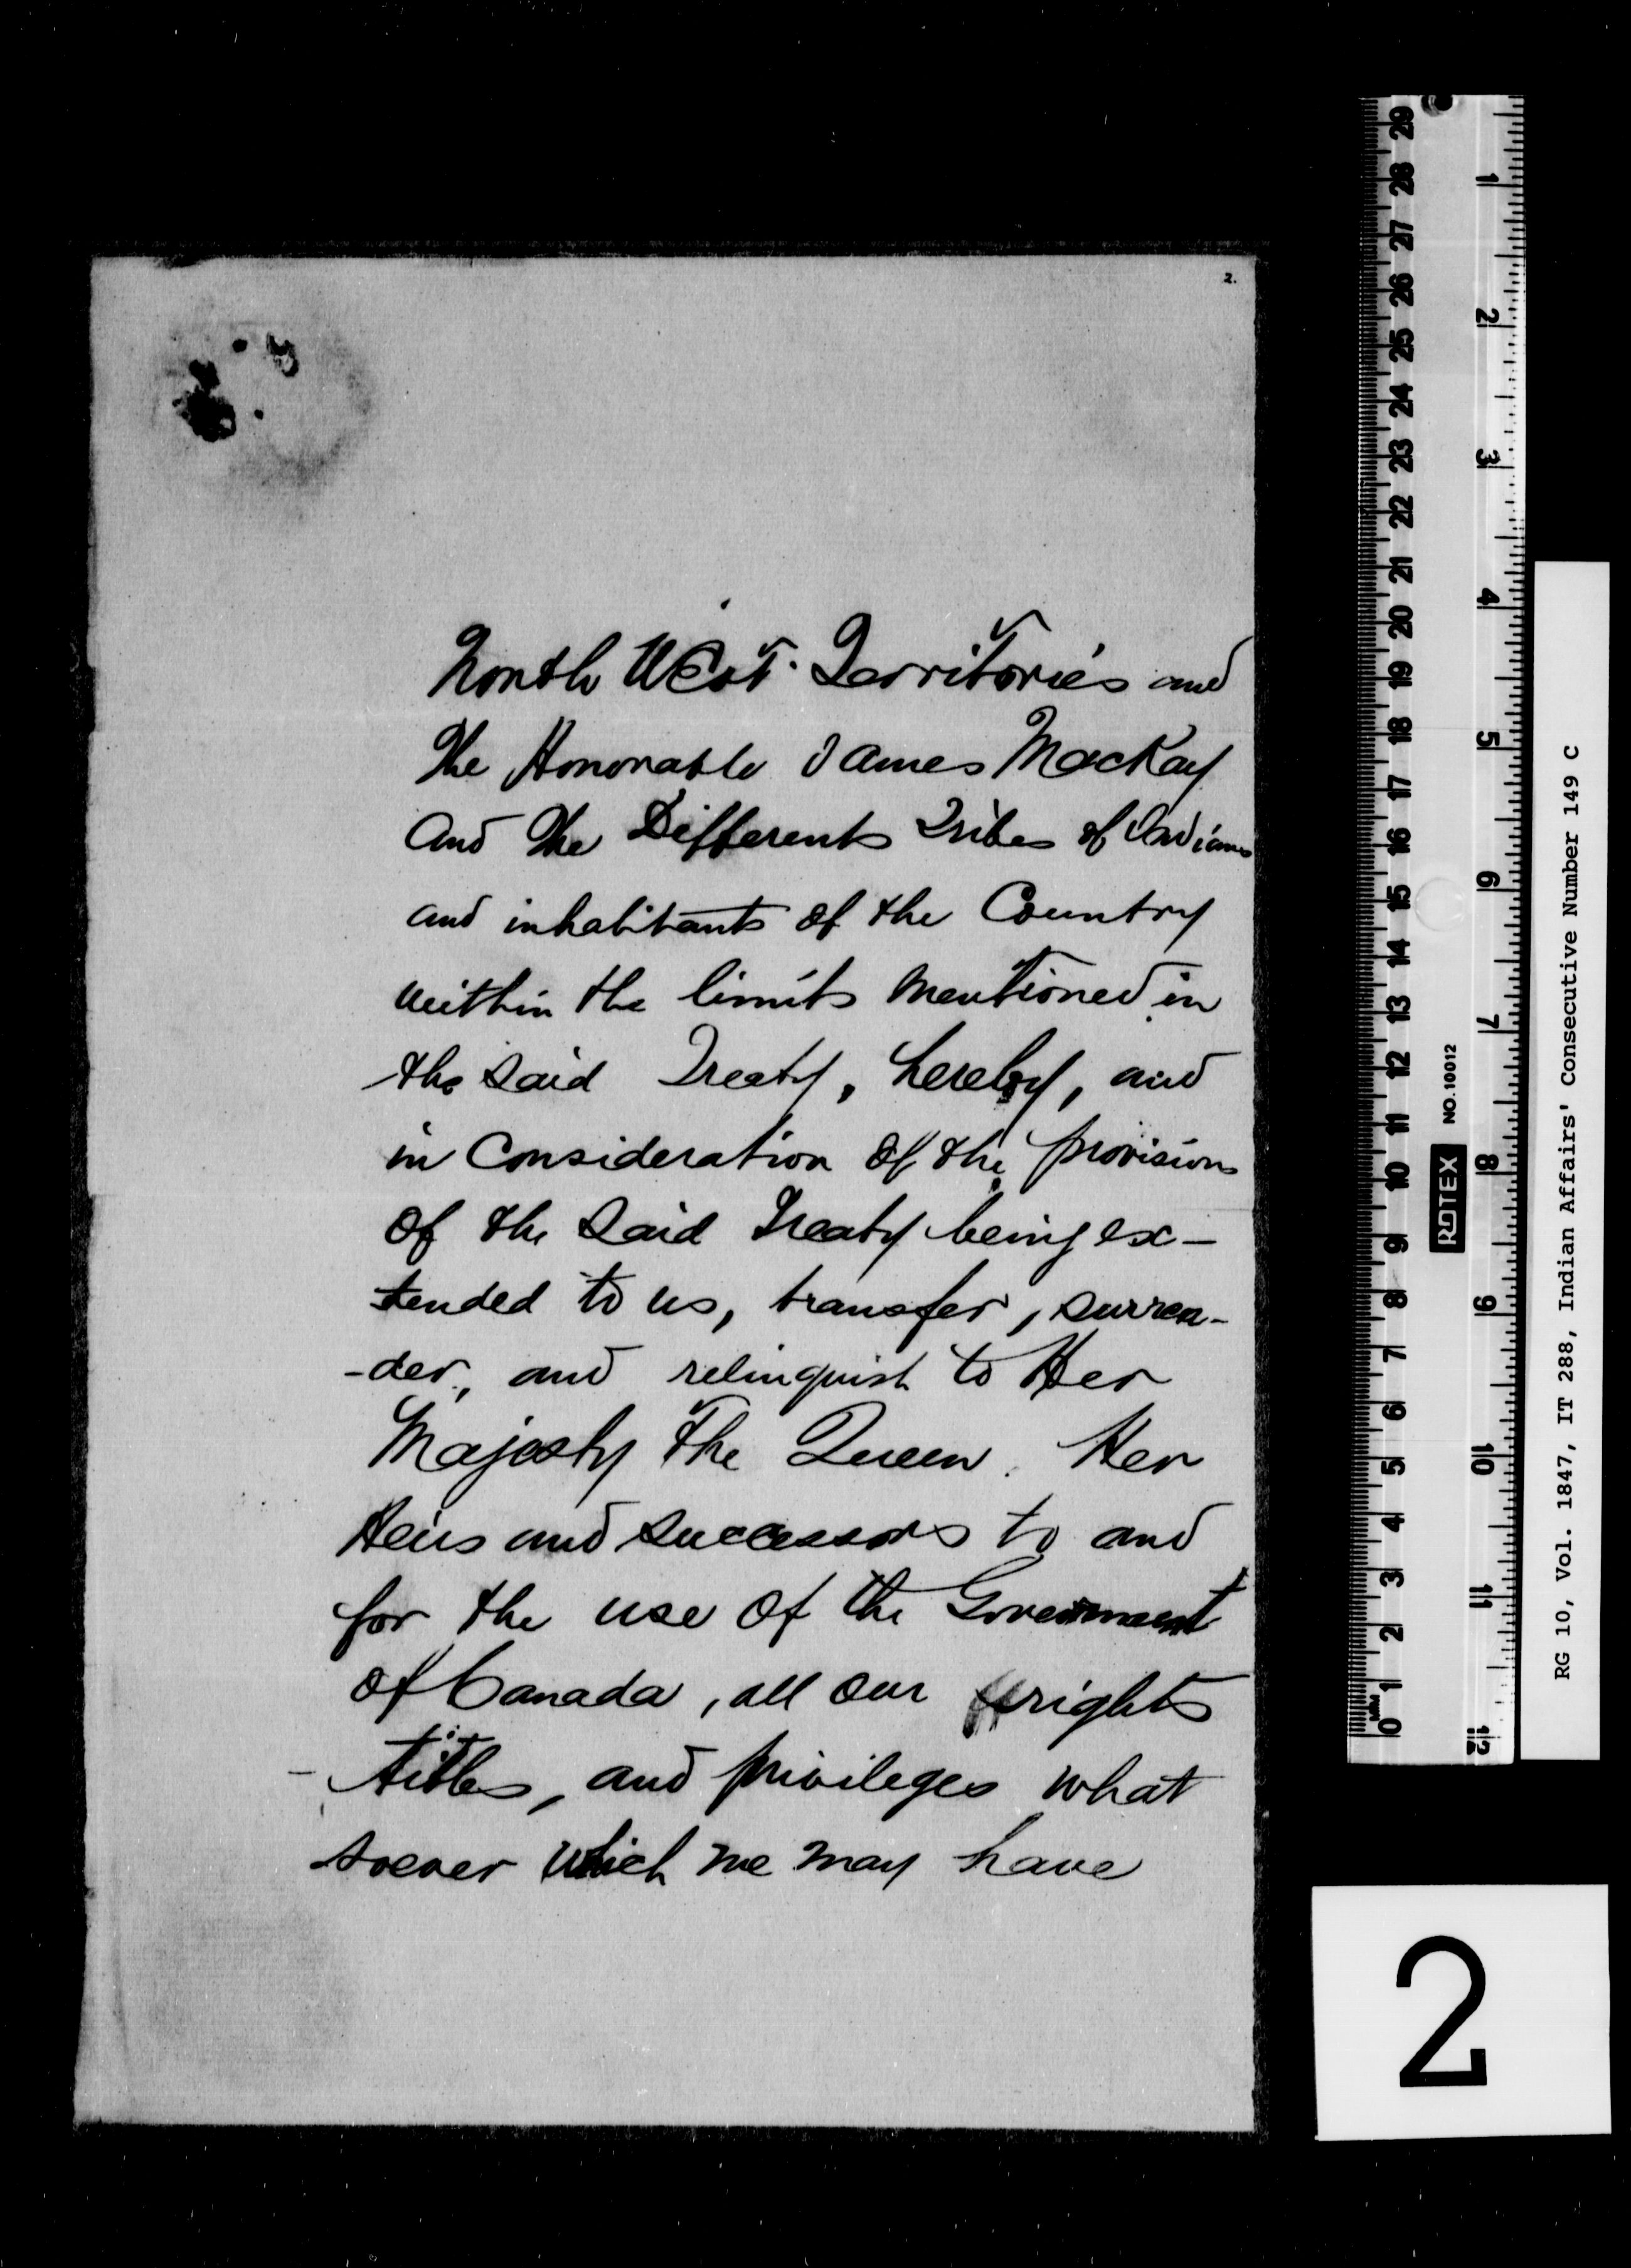 2.
North West Territories and
the Honorable James MacKay
and the Different Tribes of Indians
and inhabitants of the Country
within the limits mentioned in
the said Treaty, hereby, and
in Consideration of the provisions
of the said Treaty being ex-
tended to us, transfer, surren-
-der, and relinquish to Her
Majesty the Queen. Her
Heirs and successors to and
for the use of the Government
of Canada, all our rights
- titles, and privileges what
soever which we may have
29
28
27
26
25
24
23
22
21
20
19
18
17
16
15
14
13
12
11
10
9
8
7
6
5
4
3
2
1
0
1
2
3
4
5
6
7
8
9
10
11
12
ROTEX NO. 10012
RG 10, Vol. 1847, IT 288, Indian Affairs' Consecutive Number 149 C
2